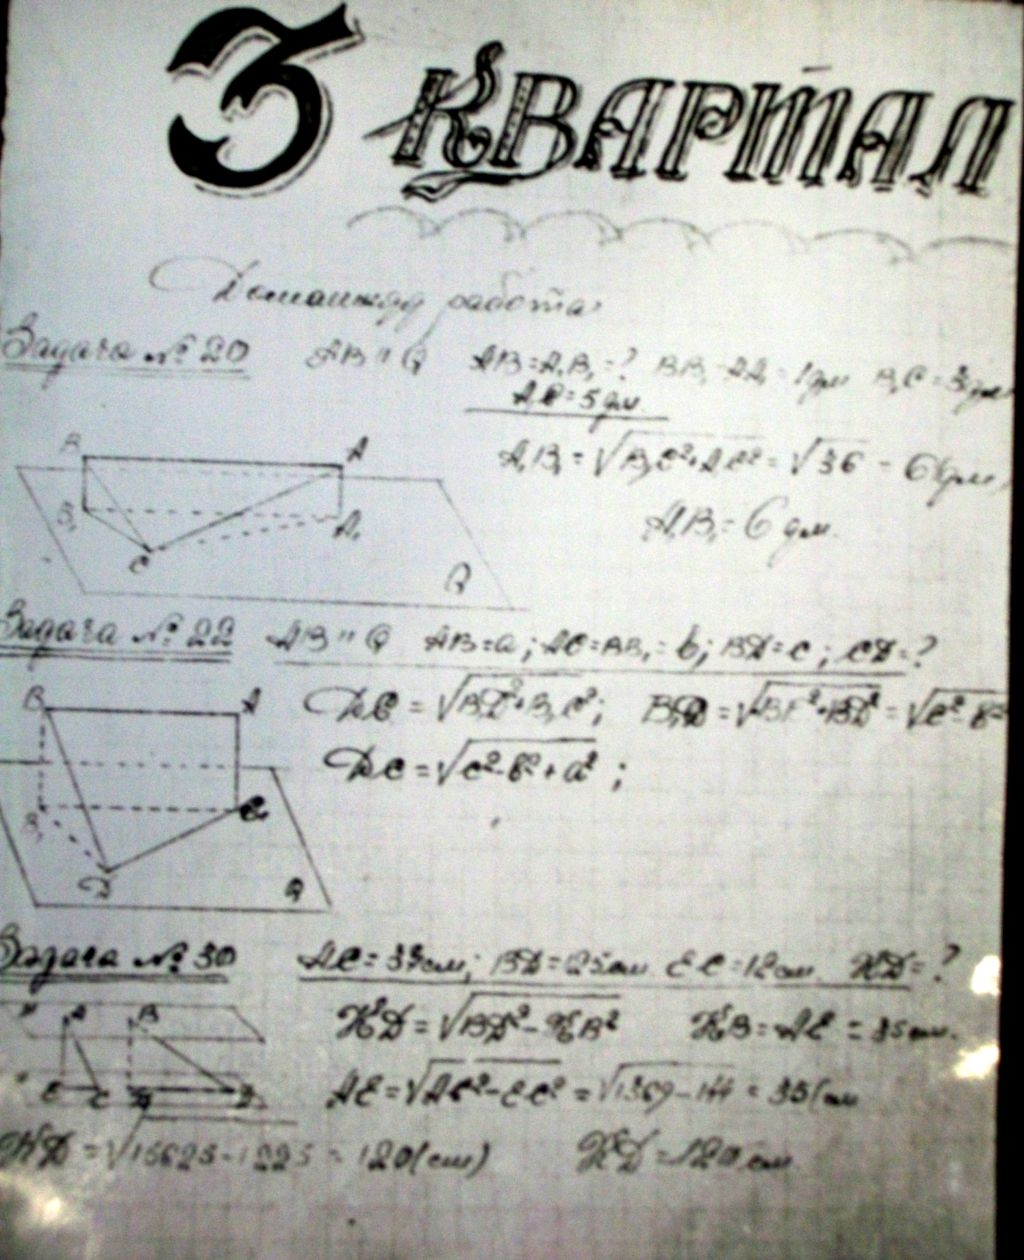 3 КВАРТАЛ
Домашняя работа
Задача № 20 AB || Q AB = A₁B₁ = ? BB₁ = AA₁ = 1дм B₁C = 3дм
AC = 5дм
B A
A₁B₁ = √B₁C²+AC² = √36 = 6(дм)
B₁ A₁
A₁B₁ = 6дм.
C Q
Задача № 22 AB || Q AB = a; AC = BB₁ = b; BD = c; CD = ?
B A
DC = √BD²+B₁C²; B₁D = = √c²-b²
DC = √c²-b²+a²;
B₁ C
D Q
Задача № 30 AC = 37см; BD = 125см EC = 12см KD = ?
A B
KD = √BD²-KB² KB = AE = 35см.
E C K D
AE = √AC²-EC² = √1369-144 = 35(см
KD = √15625-1225 = 120(см) KD = 120см